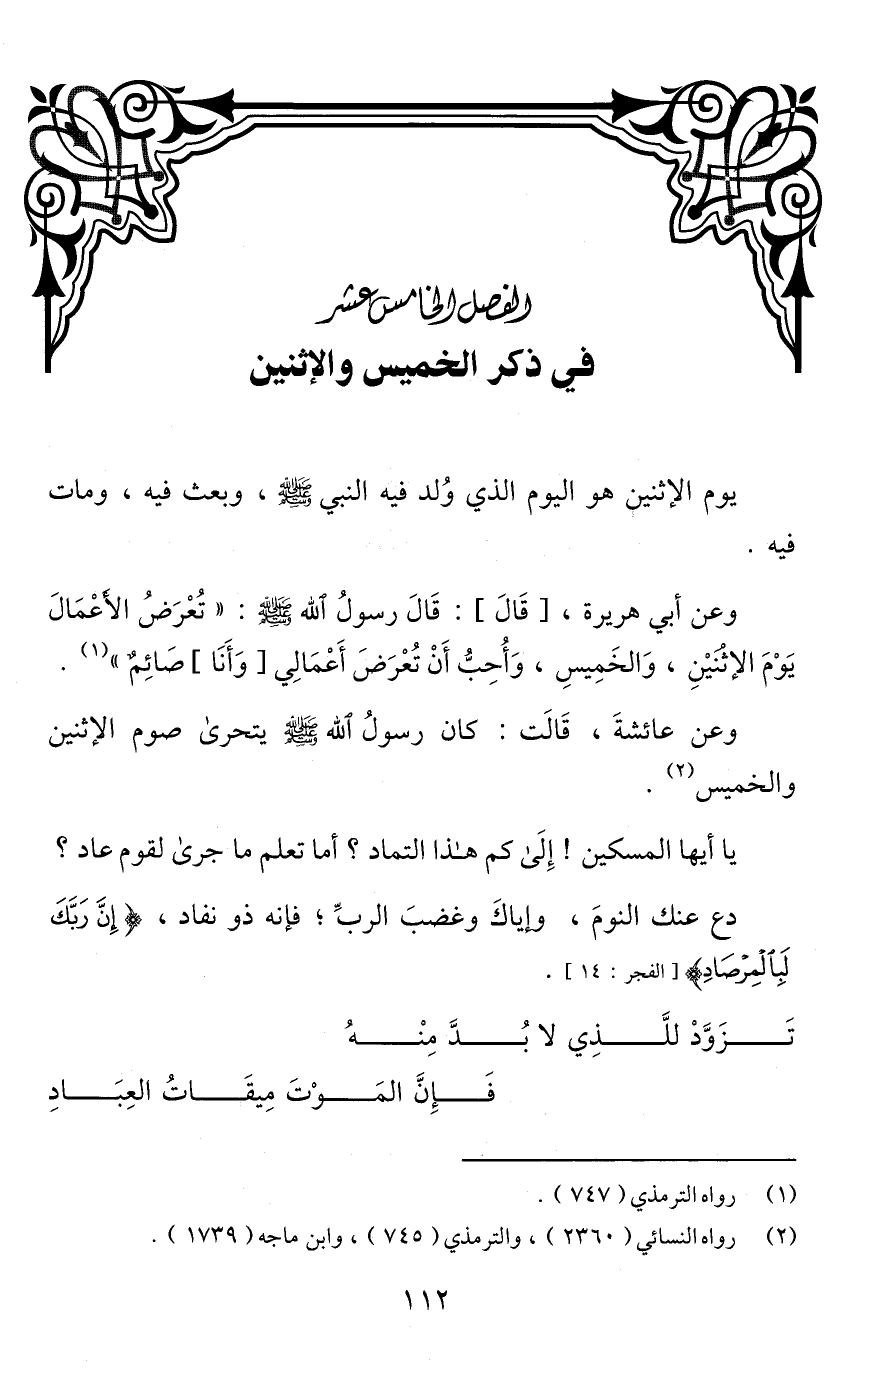 الفصل الخامس عشر
في ذكر الخميس والإثنين
يوم الإثنين هو اليوم الذي وُلد فيه النبي ﷺ ، وبعث فيه ، ومات
فيه .
وعن أبي هريرة ، [ قَالَ ] : قَالَ رسولُ ٱلله ﷺ : « تُعْرَضُ الأَعْمَالَ
يَوْمَ الإِثْنَيْنِ ، وَالخَمِيسِ ، وَأُحِبُّ أَنْ تُعْرَضَ أَعْمَالِي [ وَأَنَا ] صَائِمٌ »(١) .
وعن عائشةَ ، قَالَت : كان رسولُ ٱلله ﷺ يتحرىٰ صوم الإثنين
والخميس(٢) .
يا أيها المسكين ! إِلَىٰ كم هـٰذا التماد ؟ أما تعلم ما جرىٰ لقوم عاد ؟
دع عنك النومَ ، وإياكَ وغضبَ الربِّ ؛ فإنه ذو نفاد ، ﴿ إِنَّ رَبَّكَ
لَبِٱلْمِرْصَادِ﴾ [ الفجر : ١٤ ] .
تَـــزَوَّدْ للَّـــذِي لا بُـــدَّ مِنْـــهُ
فَـــإِنَّ المَـــوْتَ مِيقَـــاتُ العِبَـــادِ
(١) رواه الترمذي ( ٧٤٧ ) .
(٢) رواه النسائي ( ٢٣٦٠ ) ، والترمذي ( ٧٤٥ ) ، وابن ماجه ( ١٧٣٩ ) .
١١٢